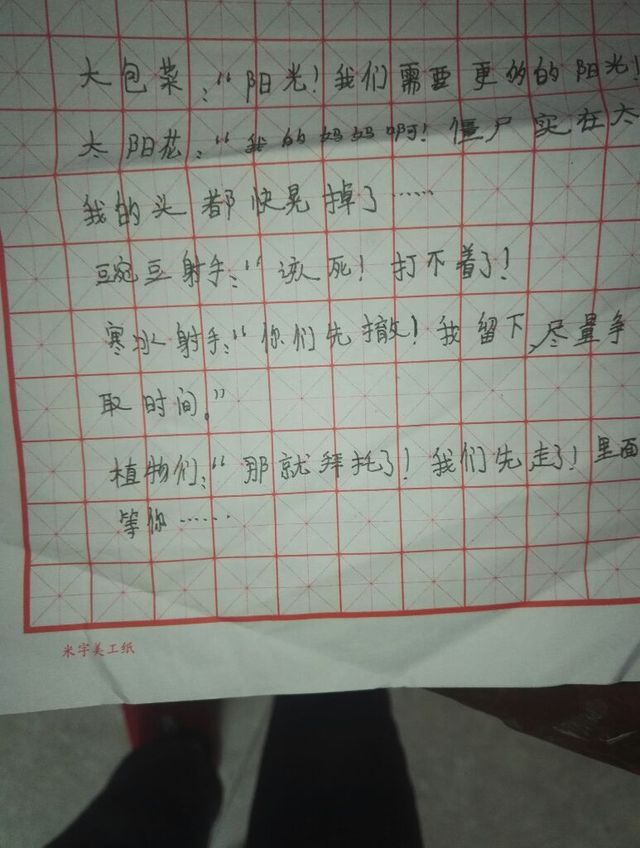 大包菜:“阳光!我们需要更的的阳光!
太阳花:“我的妈妈啊!僵尸实在太
我的头都快晃掉了……
豌豆射手:“该死!打不着了!
寒冰射手:“你们先撤!我留下,尽量争
取时间。”
植物们:“那就拜托了!我们先走了!里面
等你……
米字美工纸